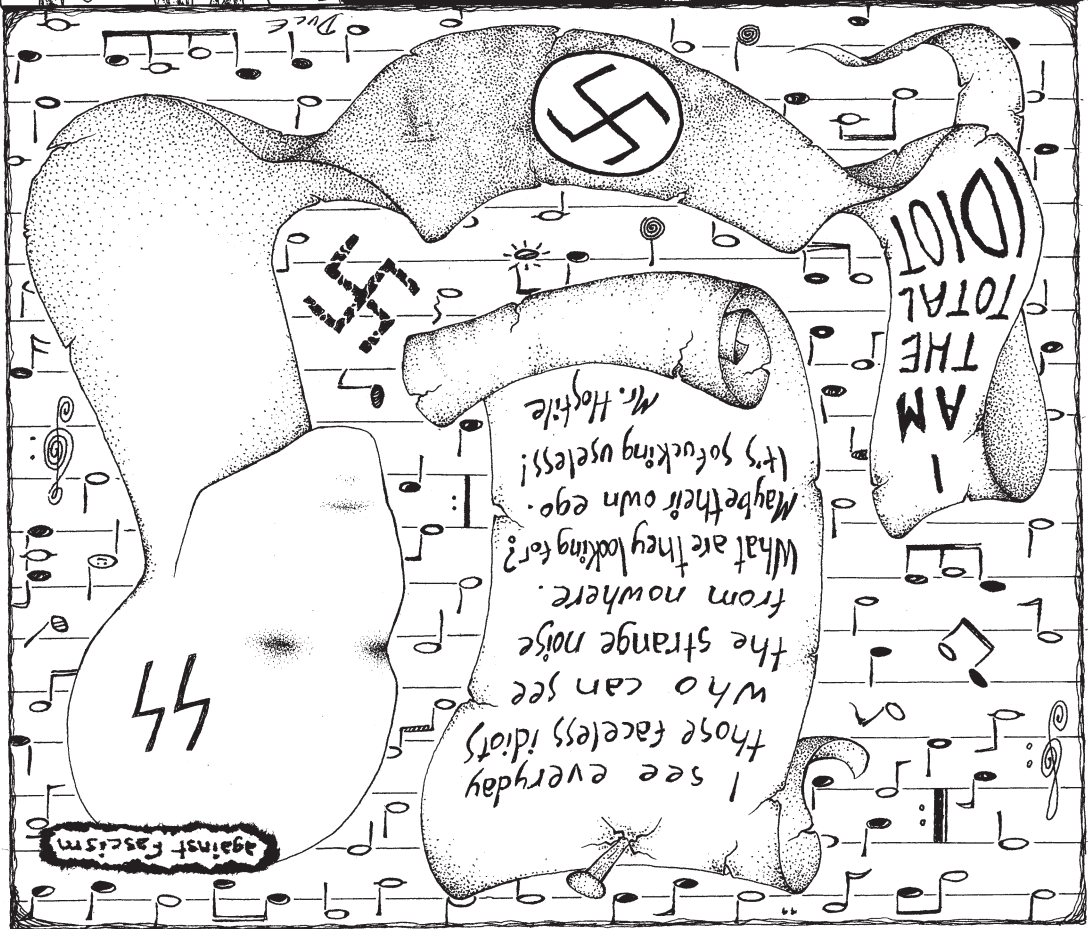 against fascism
I see everyday
those faceless idiots
who can see
the strange noise
from nowhere.
What are they looking for?
Maybe their own ego.
It's so fucking useless!
Mr. Hostile
I
AM
THE
TOTAL
IDIOT
SS